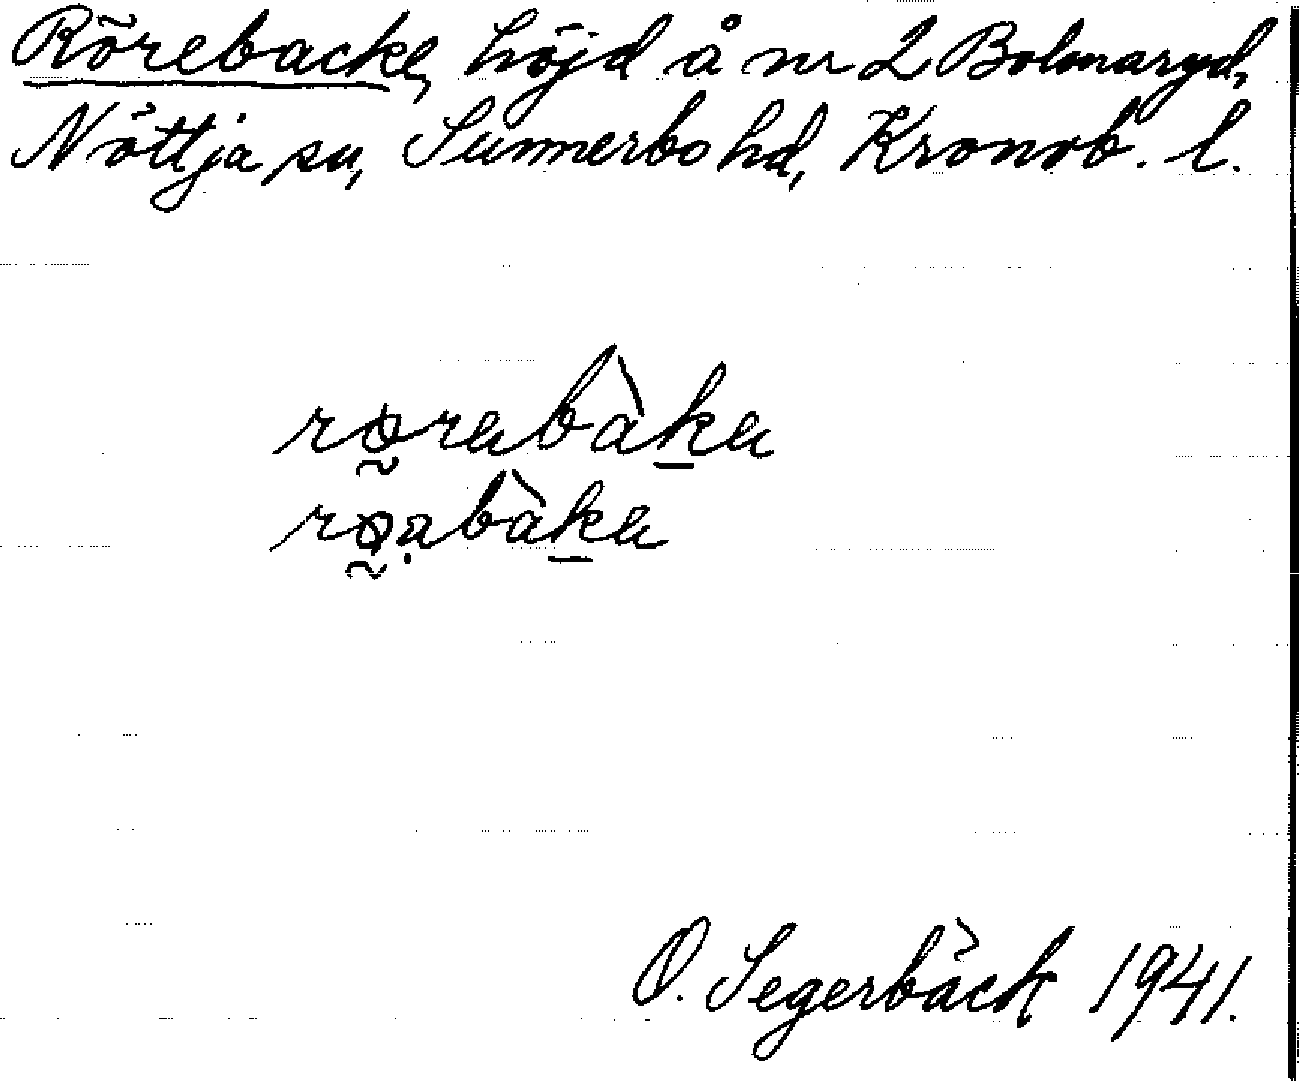 Rörebacke, höjd å nr 2 Bolmaryd,
Nöttja sn, Sunnerbo hd, Kronob. l.
rø̰rabàk̠a
rø̰ạbàk̠a
O. Segerbäck 1941.